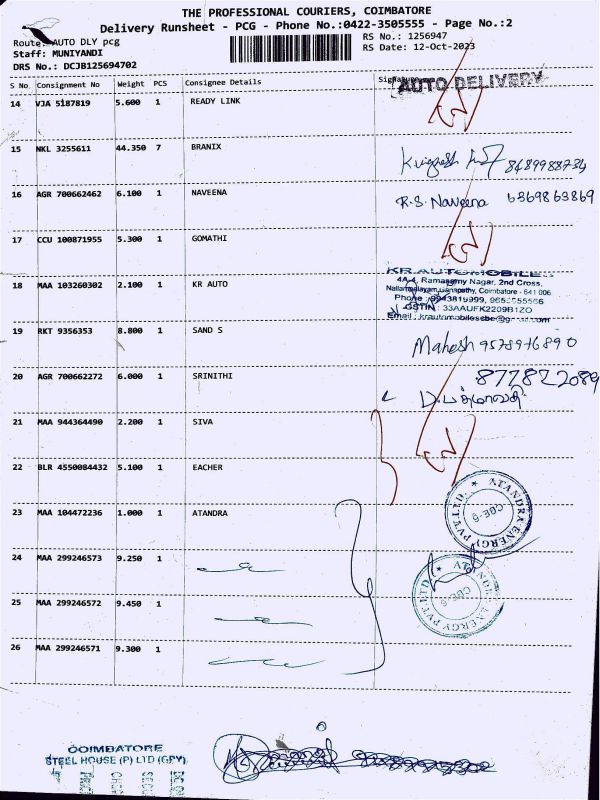 THE PROFESSIONAL COURIERS, COIMBATORE
Delivery Runsheet - PCG - Phone No.:0422-3505555 - Page No.:2
Route: AUTO DLY pcg
Staff: MUNIYANDI
DRS No.: DCJB125694702
RS No.: 1256947
RS Date: 12-Oct-2023
S No. Consignment No Weight PCS Consignee Details Signature
AUTO DELIVERY
14 VJA 5187819 5.600 1 READY LINK
15 NKL 3255611 44.350 7 BRANIX
8489988734
16 AGR 700662462 6.100 1 NAVEENA R.S. Naveena 6369863869
17 CCU 100871955 5.300 1 GOMATHI
18 MAA 103260302 2.100 1 KR AUTO
KR AUTOMOBILES
4A4, Ramasamy Nagar, 2nd Cross,
Coimbatore - 641 006
GSTIN : 33AAUFK2209B1ZO
19 RKT 9356353 8.800 1 SAND S Mahesh 9578976890
20 AGR 700662272 6.000 1 SRINITHI 8778222089
21 MAA 944364490 2.200 1 SIVA
22 BLR 4550084432 5.100 1 EACHER
23 MAA 104472236 1.000 1 ATANDRA
ATANDRA ENERGY PVT. LTD. CBE-6
24 MAA 299246573 9.250 1
ATANDRA ENERGY PVT. LTD. CBE-6
25 MAA 299246572 9.450 1
26 MAA 299246571 9.300 1
COIMBATORE
STEEL HOUSE (P) LTD (GPY)